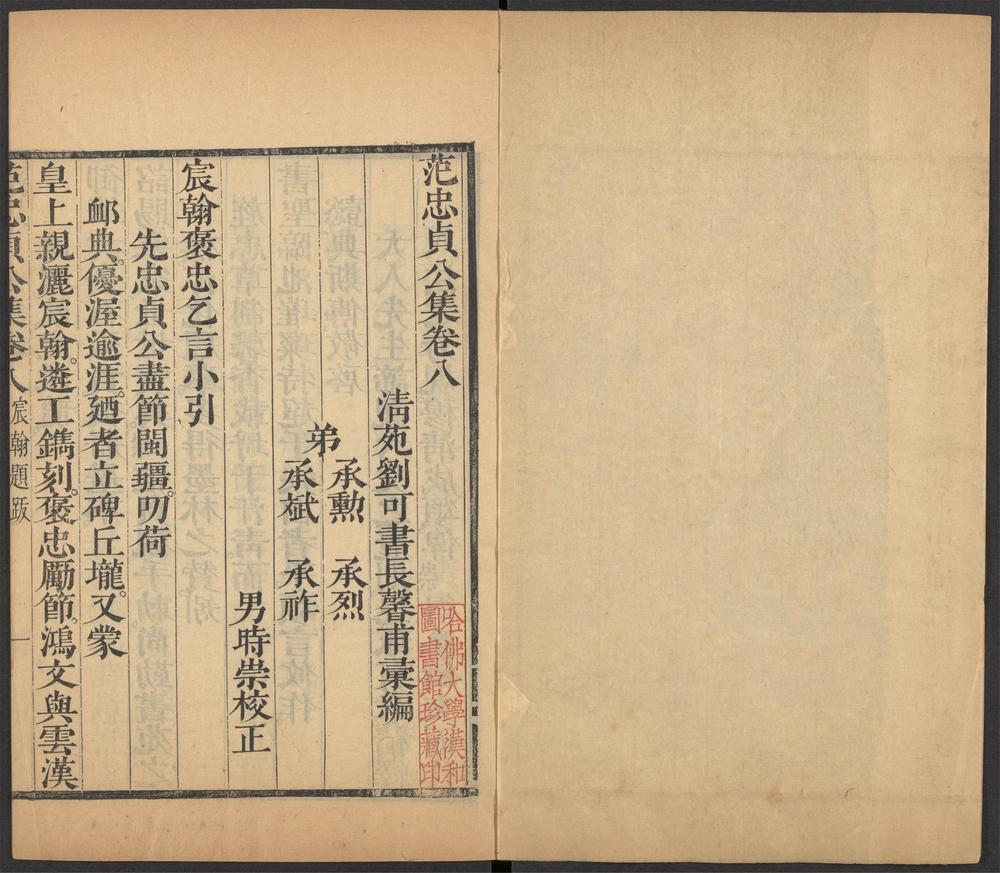 范忠貞公集卷八
清苑劉可書長馨甫彙編
弟
承勲 承烈
承斌 承祚
男時崇校正
宸翰褒忠乞言小引
先忠貞公盡節閩疆。叨荷
䘏典。優渥逾涯。廼者立碑丘壠。又蒙
皇上親灑宸翰。遴工鐫刻。褒忠勵節。鴻文與雲漢
范忠貞公集卷八 宸翰題跋 一
哈佛大學漢和
圖書館珍藏印